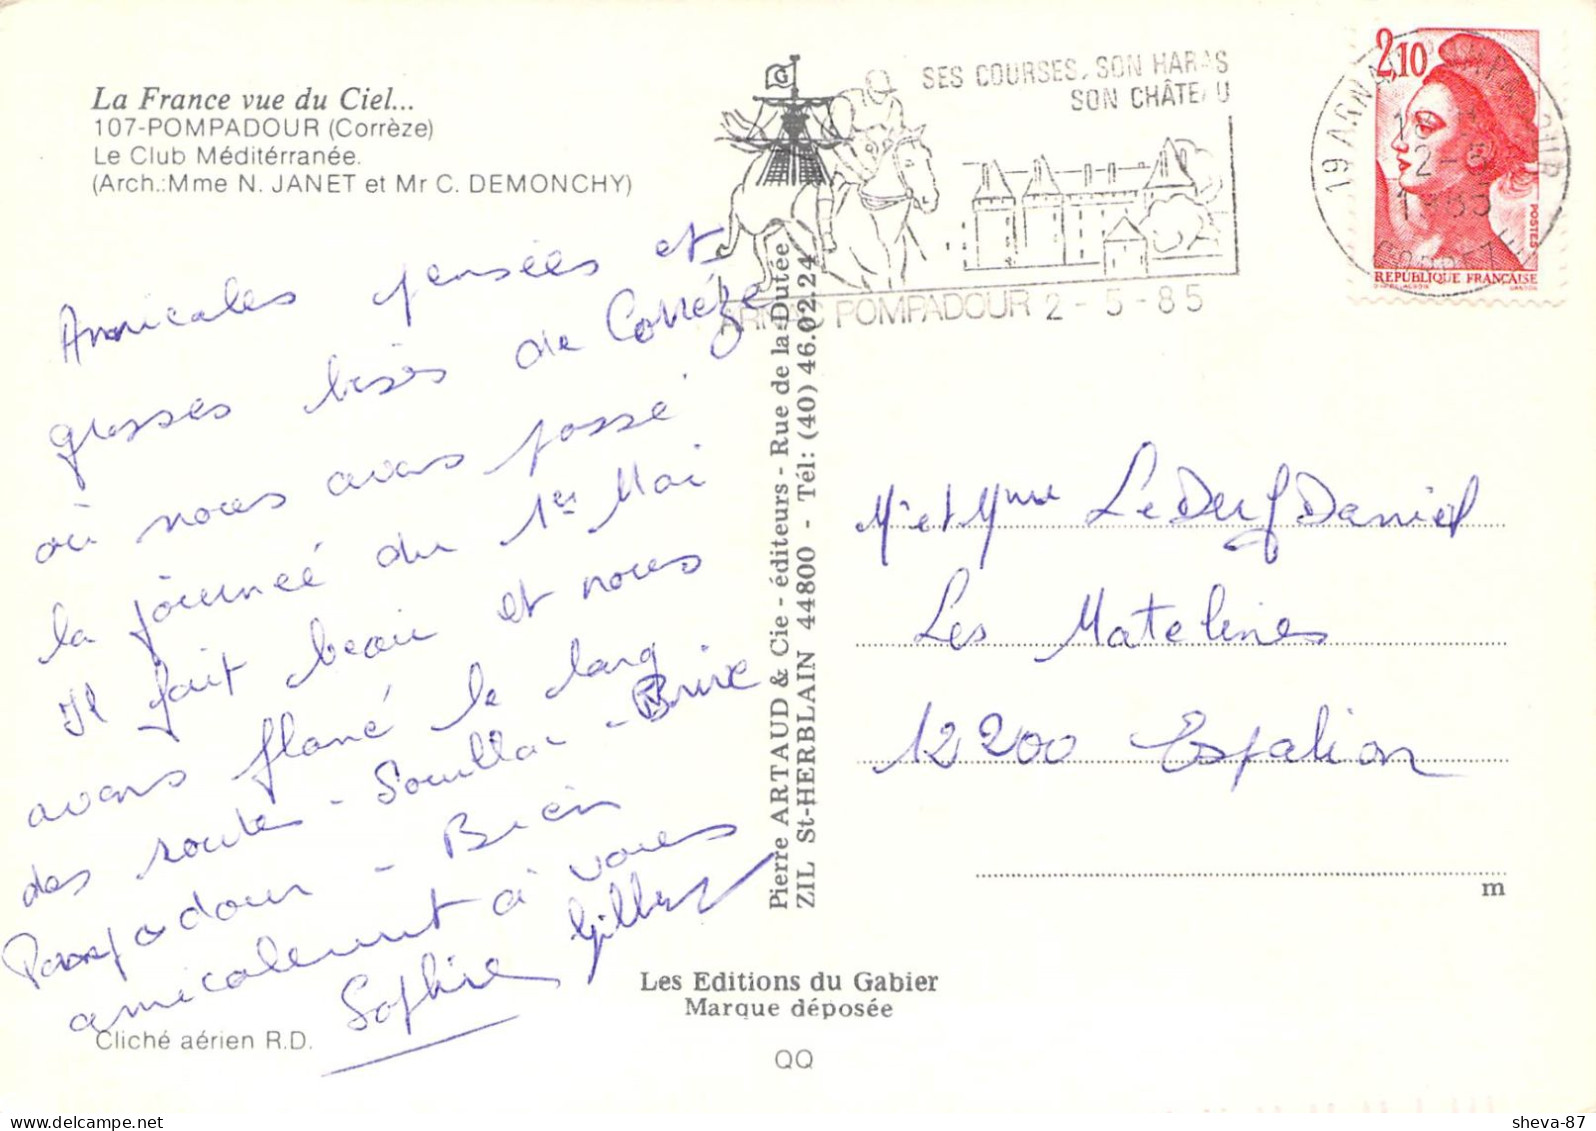 La France vue du Ciel...
107-POMPADOUR (Corrèze)
Le Club Méditérranée.
(Arch.:Mme N. JANET et Mr C. DEMONCHY)
SES COURSES, SON HARAS
SON CHÂTEAU
ARNAC POMPADOUR 2 - 5 - 85
G
2,10
19 ARNAC POMPADOUR
18
2-5
1985
CORREZE
POSTES
REPUBLIQUE FRANÇAISE
Amicales pensées et
grosses bises de Corrèze
où nous avons passé
la journée du 1er Mai
Il fait beau et nous
avons flané le long
des routes - Souillac - Brive
Pompadour - Bien
amicalement à vous
Sophie Gilbert
Pierre ARTAUD & Cie - éditeurs - Rue de la Dutée
ZIL St-HERBLAIN 44800 - Tél: (40) 46.02.24
Mr et Mme Le Deuf Daniel
Les Matelines
12200 Espalion
m
Les Editions du Gabier
Marque déposée
Cliché aérien R.D.
QQ
sheva-87